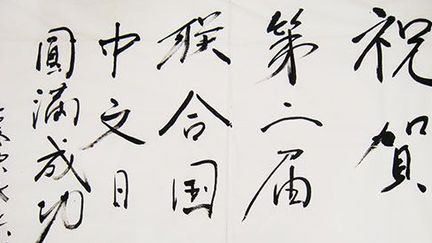 祝贺
第二届
联合国
中文日
圓满成功